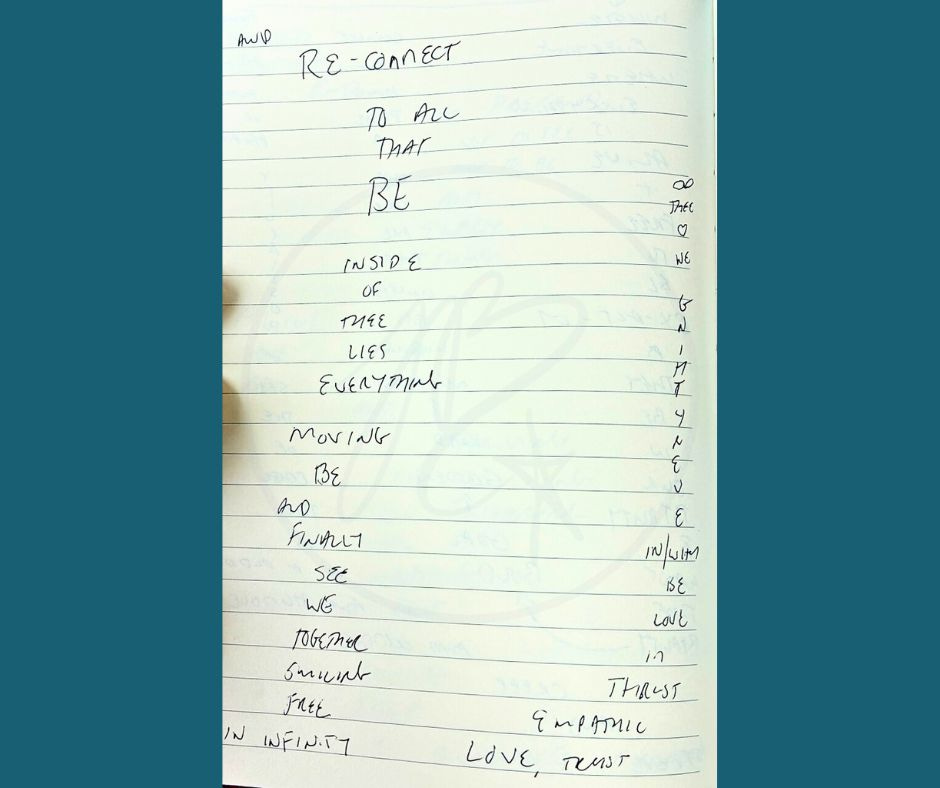 AND
RE-CONNECT
TO ALL
THAT
BE
INSIDE
OF
THEE
LIES
EVERYTHING
MOVING
BE
AND
FINALLY
SEE
WE
TOGETHER
SMILING
FREE
IN INFINITY
LOVE, TRUST
EMPATHIC
THRUST
IN
LOVE
BE
IN/WITH
E
V
E
R
Y
T
H
I
N
G
WE
♡
THEE
∞